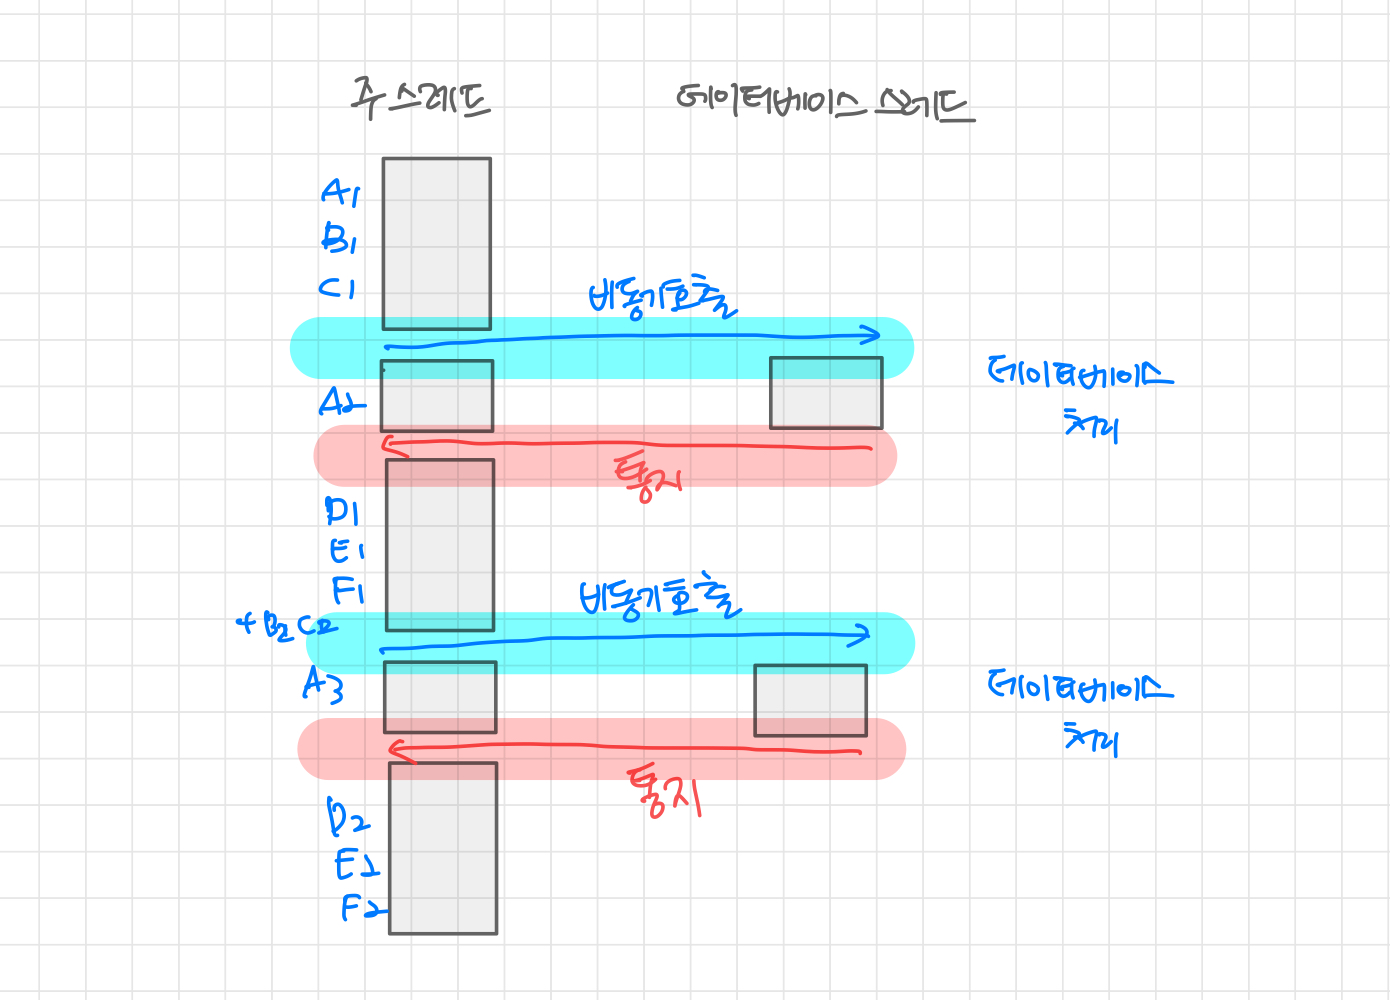 주 스레드
데이터베이스 스레드
A1
B1
C1
비동기호출
A2
데이터베이스
처리
통지
D1
E1
F1
비동기호출
+ B2 C2
A3
데이터베이스
처리
통지
D2
E2
F2